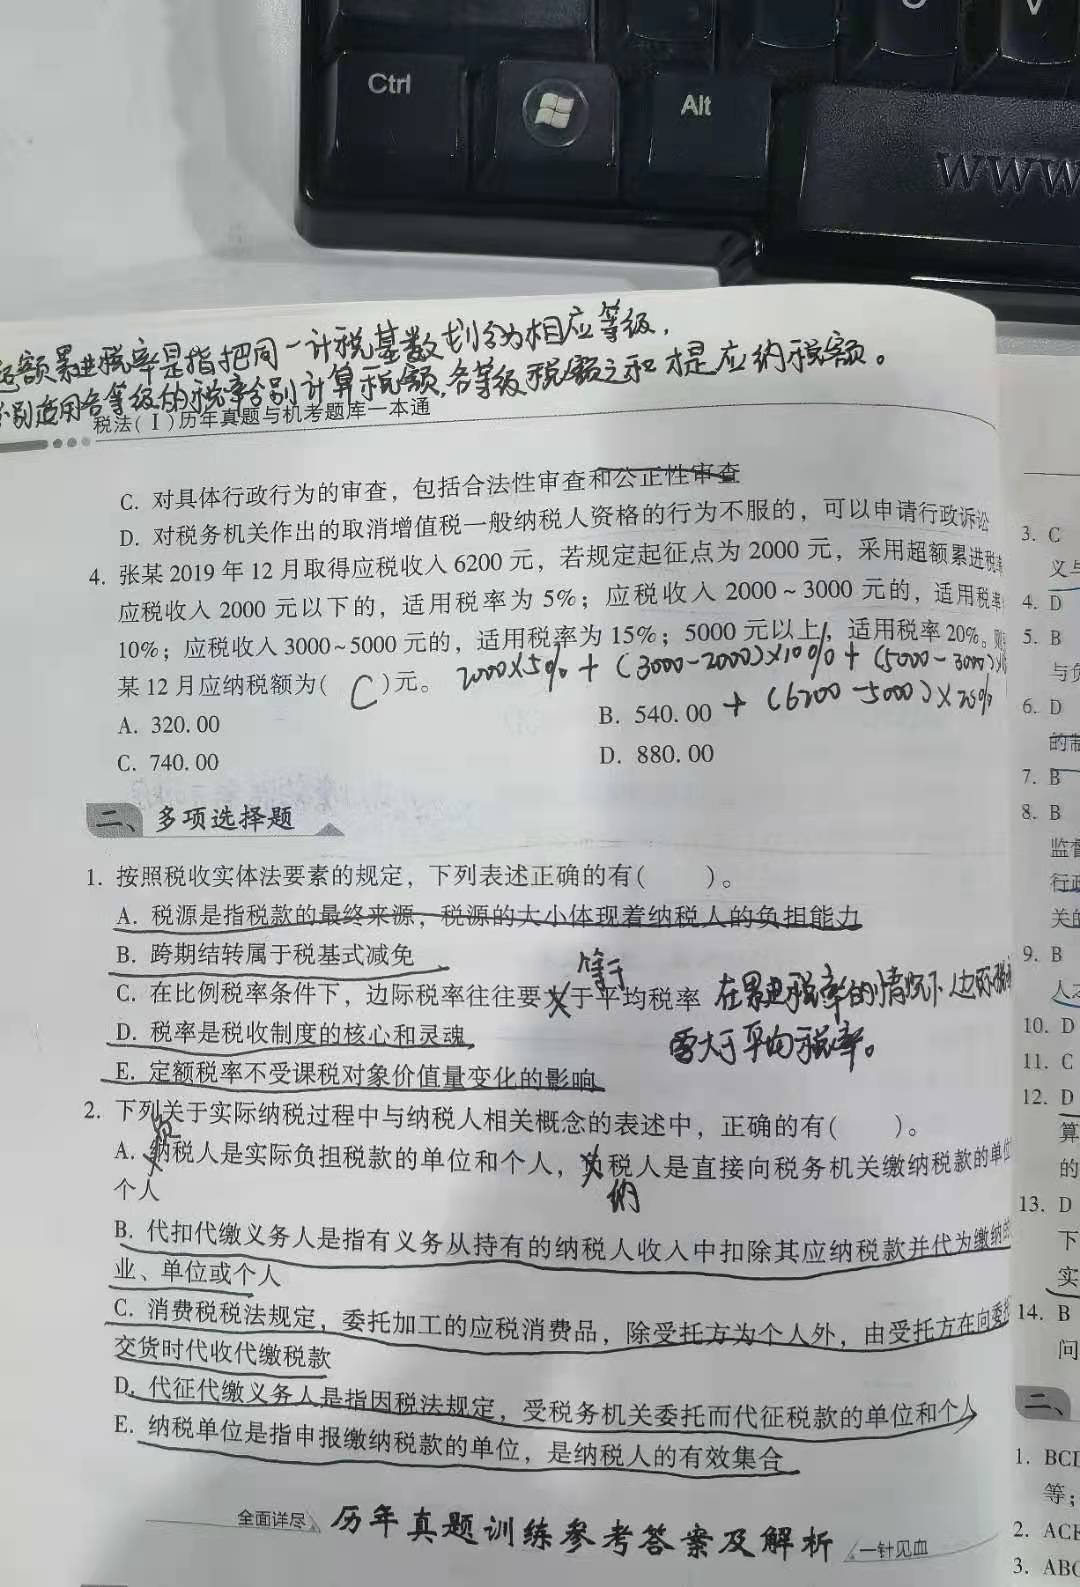 Ctrl
Alt
WWW
额累进税率是指把同一计税基数划分为相应等级，
分别适用各等级的税率分别计算税额,各等级税额之和才是应纳税额。
税法(Ⅰ)历年真题与机考题库一本通
C. 对具体行政行为的审查，包括合法性审查和公正性审查
D. 对税务机关作出的取消增值税一般纳税人资格的行为不服的，可以申请行政诉讼
4. 张某 2019 年 12 月取得应税收入 6200 元，若规定起征点为 2000 元，采用超额累进税率
应税收入 2000 元以下的，适用税率为 5%；应税收入 2000~3000 元的，适用税率
10%；应税收入 3000~5000 元的，适用税率为 15%；5000 元以上，适用税率 20%。则
某 12 月应纳税额为( C )元。
2000×5% + (3000-2000)×10% + (5000-3000)×
+ (6200-5000)×20%
A. 320.00
B. 540.00
C. 740.00
D. 880.00
二、多项选择题
1. 按照税收实体法要素的规定，下列表述正确的有( )。
A. 税源是指税款的最终来源，税源的大小体现着纳税人的负担能力
B. 跨期结转属于税基式减免
等于
C. 在比例税率条件下，边际税率往往要大于平均税率
在累进税率的情况下 边际税率
D. 税率是税收制度的核心和灵魂
要大于平均税率。
E. 定额税率不受课税对象价值量变化的影响
2. 下列关于实际纳税过程中与纳税人相关概念的表述中，正确的有( )。
负
A. 纳税人是实际负担税款的单位和个人，负税人是直接向税务机关缴纳税款的单位
个人
纳
B. 代扣代缴义务人是指有义务从持有的纳税人收入中扣除其应纳税款并代为缴纳的
业、单位或个人
C. 消费税税法规定，委托加工的应税消费品，除受托方为个人外，由受托方在向委托
交货时代收代缴税款
D. 代征代缴义务人是指因税法规定，受税务机关委托而代征税款的单位和个人
E. 纳税单位是指申报缴纳税款的单位，是纳税人的有效集合
全面详尽 历年真题训练参考答案及解析 一针见血
3. C
义与
4. D
5. B
与负
6. D
的制
7. B
8. B
监督
行政
关的
9. B
人才
10. D
11. C
12. D
算
的
13. D
下
实
14. B
问
二、
1. BCD
等；
2. ACE
3. ABC